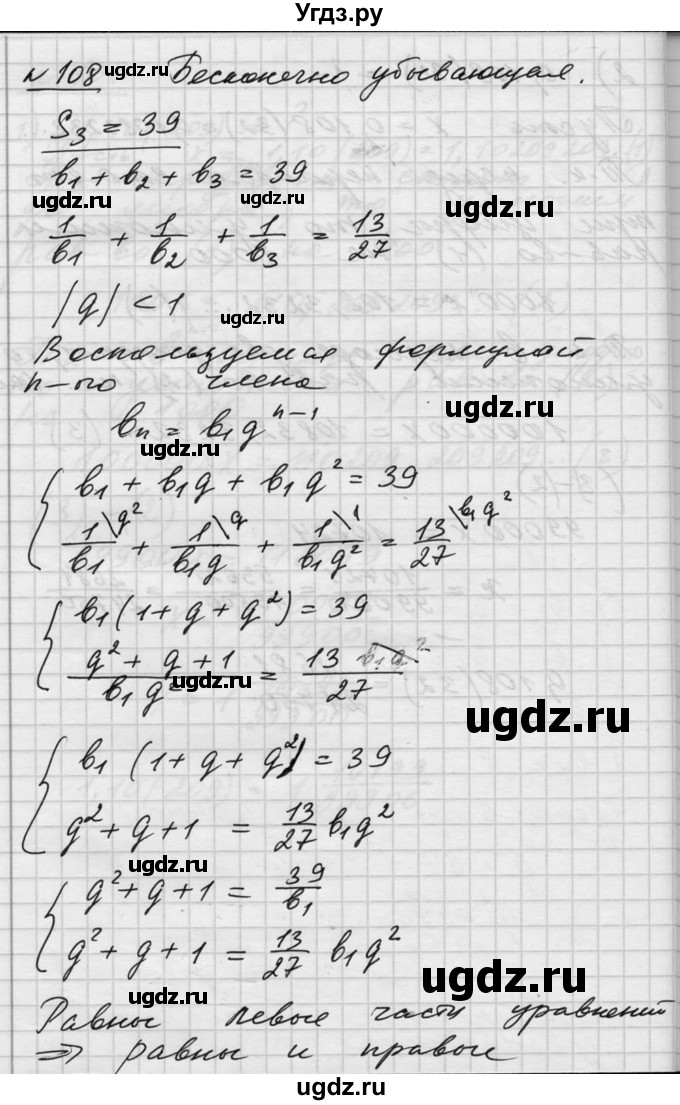 Угдз.ру
№ 108 Бесконечно убывающая.
ugdz.ru
S₃ = 39
b₁ + b₂ + b₃ = 39
ugdz.ru
ugdz.ru
1/b₁ + 1/b₂ + 1/b₃ = 13/27
ugdz.ru
|q| < 1
ugdz.ru
Воспользуемся формулой
n-го члена
ugdz.ru
bₙ = b₁q^(n-1)
{ b₁ + b₁q + b₁q² = 39
1/b₁ \q² + 1/(b₁q) \q + 1/(b₁q²) \1 = 13/27 \b₁q²
ugdz.ru
{ b₁(1 + q + q²) = 39
(q² + q + 1)/(b₁q²) = (13 b₁q²)/27
ugdz.ru
ugdz.ru
{ b₁ (1 + q + q²) = 39
q² + q + 1 = 13/27 b₁q²
ugdz.ru
{ q² + q + 1 = 39/b₁
q² + q + 1 = 13/27 b₁q²
ugdz.ru
ugdz.ru
Равны левые части уравнений
⇒ равны и правые
ugdz.ru